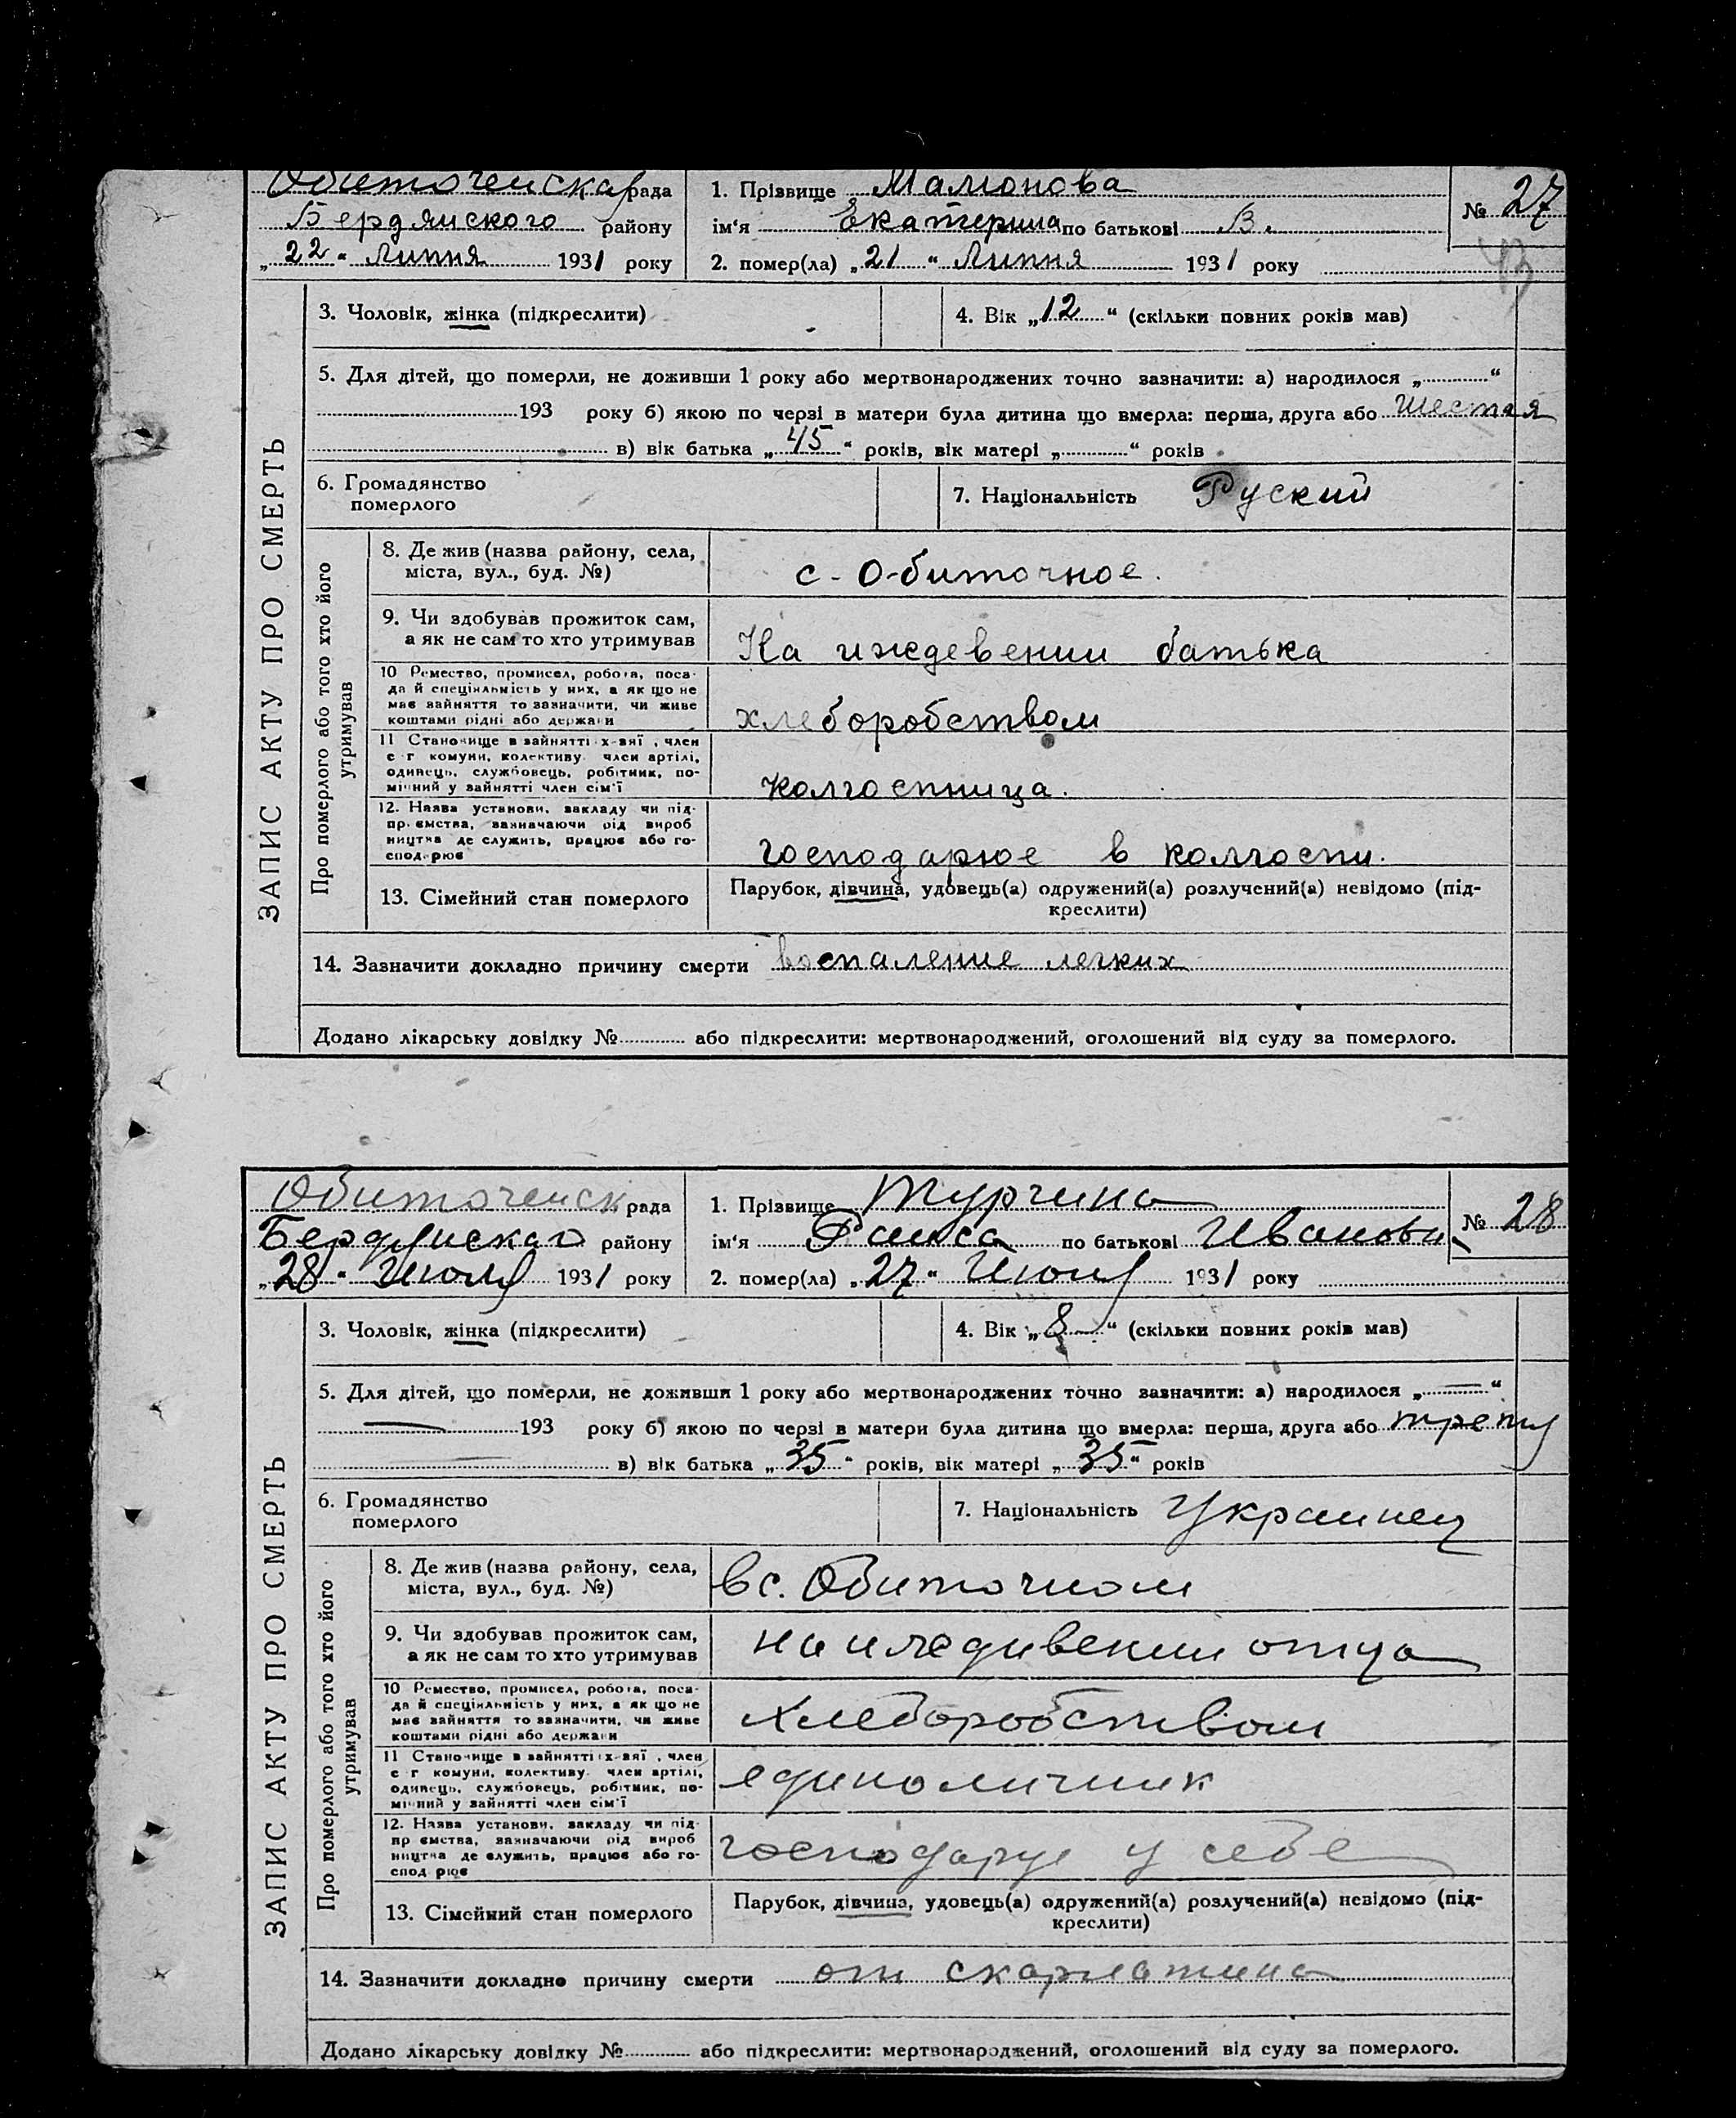 Обиточенская рада
Бердянского району
„22“ Липня 1931 року
1. Прізвище Мамонова
ім‘я Екатерина по батькові В.
2. помер(ла) „21“ Липня 1931 року
№ 27
43
ЗАПИС АКТУ ПРО СМЕРТЬ
3. Чоловік, жінка (підкреслити)
4. Вік „12“ (скільки повних років мав)
5. Для дітей, що померли, не доживши 1 року або мертвонароджених точно зазначити: а) народилося „............“
193 року б) якою по черзі в матери була дитина що вмерла: перша, друга або шестая
в) вік батька „45“ років, вік матері „............“ років
6. Громадянство
померлого
7. Національність Руский
Про померлого або того хто його
утримував
8. Де жив (назва району, села,
міста, вул., буд. №)
с-Обиточное.
9. Чи здобував прожиток сам,
а як не сам то хто утримував
На иждевении батька
10 Ремество, промисел, робота, поса-
да й спеціяльність у них, а як що не
має зайняття то зазначити, чи живе
коштами рідні або держави
хлеборобством
11 Становище в зайнятті х-зяї , член
с г комуни, колективу член артілі,
одинець, службовець, робітник, по-
мічний у зайнятті член сім'ї
колгоспница.
12. Назва установи, закладу чи під-
пр. ємства, зазначаючи рід вироб
ництва де служить, працює або го-
спод рює
господарюе в колгоспи.
13. Сімейний стан померлого
Парубок, дівчина, удовець(а) одружений(а) розлучений(а) невідомо (під-
креслити)
14. Зазначити докладно причину смерти воспаление легких
Додано лікарську довідку №............ або підкреслити: мертвонароджений, оголошений від суду за померлого.
Обиточенск рада
Бердянскаго району
„28“ Июля 1931 року
1. Прізвище Тургина
ім‘я Раиса по батькові Иванови
2. помер(ла) „27“ Июля 1931 року
№ 28
ЗАПИС АКТУ ПРО СМЕРТЬ
3. Чоловік, жінка (підкреслити)
4. Вік „8“ (скільки повних років мав)
5. Для дітей, що померли, не доживши 1 року або мертвонароджених точно зазначити: а) народилося „—“
— 193 року б) якою по черзі в матери була дитина що вмерла: перша, друга або третя
в) вік батька „35“ років, вік матері „35“ років
6. Громадянство
померлого
7. Національність Украинец
Про померлого або того хто його
утримував
8. Де жив (назва району, села,
міста, вул., буд. №)
в с. Обиточном
9. Чи здобував прожиток сам,
а як не сам то хто утримував
на иждивении отца
10 Ремество, промисел, робота, поса-
да й спеціяльність у них, а як що не
має зайняття то зазначити, чи живе
коштами рідні або держави
Хлеборобством
11 Становище в зайнятті х-зяї , член
с г комуни, колективу член артілі,
одинець, службовець, робітник, по-
мічний у зайнятті член сім'ї
единоличник
12. Назва установи, закладу чи під-
пр ємства, зазначаючи рід вироб
ництва де служить, працює або го-
спод рює
господарує у себе
13. Сімейний стан померлого
Парубок, дівчина, удовець(а) одружений(а) розлучений(а) невідомо (під-
креслити)
14. Зазначити докладно причину смерти от скарлатина
Додано лікарську довідку №............ або підкреслити: мертвонароджений, оголошений від суду за померлого.